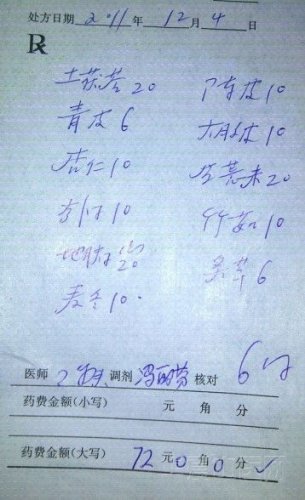 处方日期 2011年 12月 4日
R
土茯苓20 陈皮10
青皮6 大腹皮10
杏仁10
10 竹茹10
地肤子20 吴萸6
麦冬10
医师 调剂 核对 6付
药费金额(小写) 元 角 分
药费金额(大写) 72元0角0分